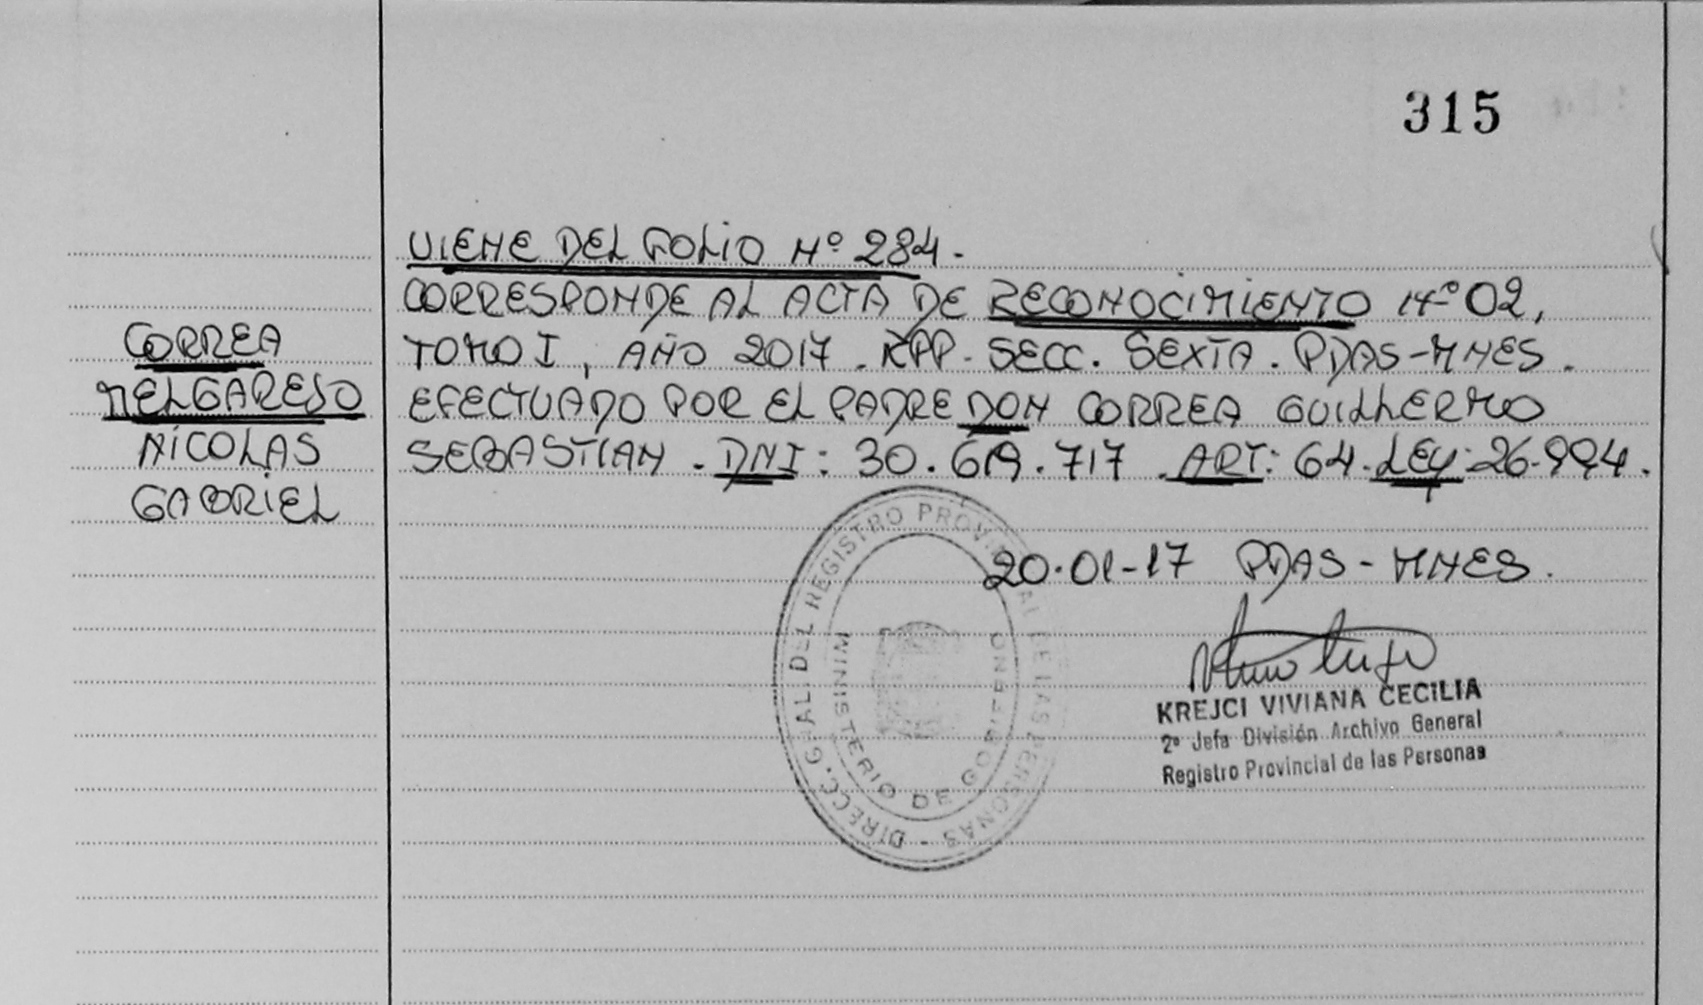 315
VIENE DEL FOLIO Nº 284.
CORRESPONDE AL ACTA DE RECONOCIMIENTO Nº 02,
TOMO I, AÑO 2017. RPP. SECC. SEXTA. PDAS-MNES.
EFECTUADO POR EL PADRE DON CORREA GUILLERMO
SEBASTIAN. DNI: 30.619.717. ART: 64. LEY: 26.994.
CORREA
MELGAREJO
NICOLAS
GABRIEL
20-01-17 PDAS-MNES.
KREJCI VIVIANA CECILIA
2º Jefa División Archivo General
Registro Provincial de las Personas
DIRECC. GRAL. DEL REGISTRO PROVINCIAL DE LAS PERSONAS -
MINISTERIO DE GOBIERNO